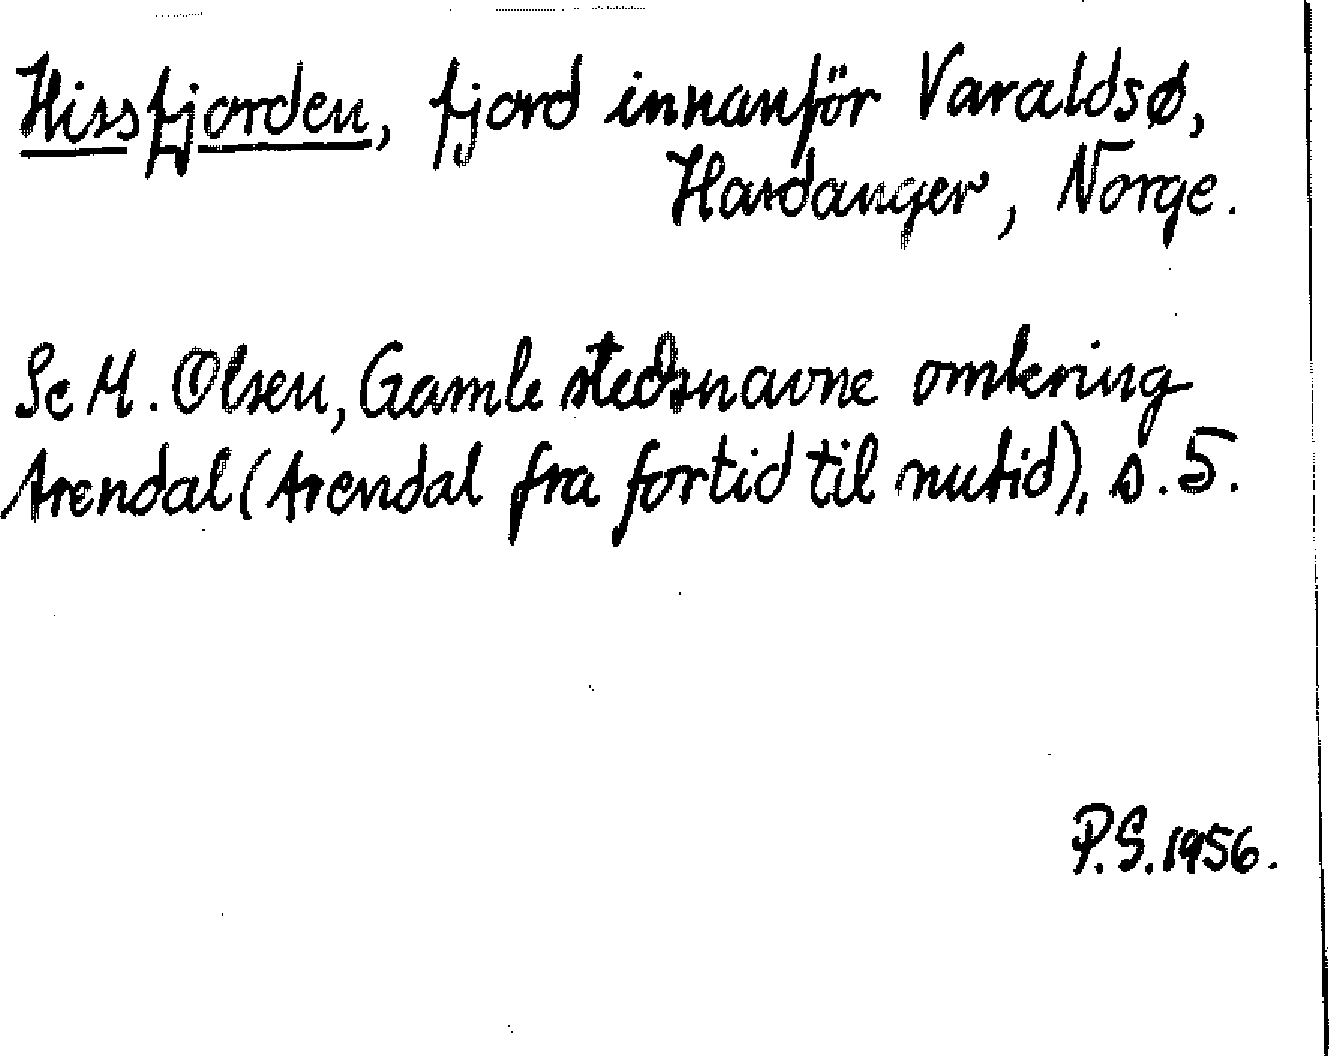 Hissfjorden, fjord innanför Varaldsø,
Hardanger, Norge.
Se M. Olsen, Gamle stedsnavne omkring
Arendal (Arendal fra fortid til nutid), s. 5.
P.S. 1956.